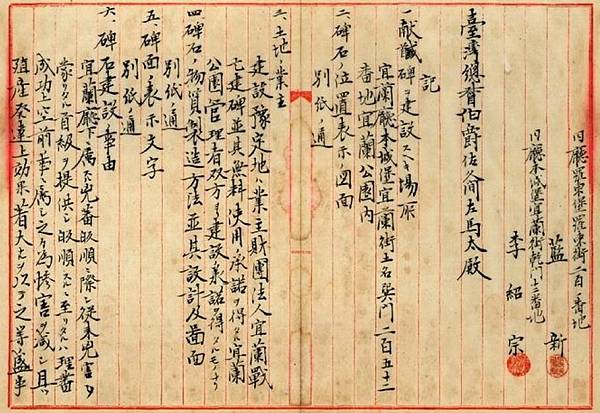 同廳羅東堡羅東街二百一番地
藍新
同廳本城堡宜蘭街乾門十二番地
李紹宗
臺灣總督伯爵佐久間左馬太殿
記
一、獻馘碑ヲ建設スヘキ場所
宜蘭廳本城堡宜蘭街土名巽門二百五十二
番地宜蘭公園內
二、碑石ノ位置表示ノ図面
別紙ノ通
三、土地ノ業主
建設豫定地ハ業主財團法人宜蘭戰
亡建碑並其無料使用ノ承諾ヲ得タル宜蘭
公園管理者双方ヨリ建設承諾ヲ得タルモノナリ
四、碑石ノ物質製造方法並其設計及啚面
別紙ノ通
五、碑面ノ表示文字
別紙ノ通
六、碑石建設ノ事由
宜蘭廳下ニ属スル兇蕃皈順ノ際シ從来兇害ヲ
蒙リタル首級ヲ提供シ皈順スルニ至リタルハ理蕃
成功上空前ノ事ニ属シ之カ為慘害ヲ減シ且ツ
殖產発達上効果ノ著大ナルヲ以テ之等盛事